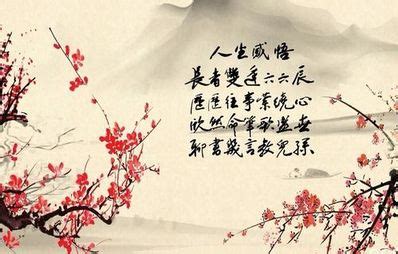 人生感悟
長者雙逢六六辰
歷歷往事業繞心
欣然命筆歌盛世
聊書幾言教兒孫